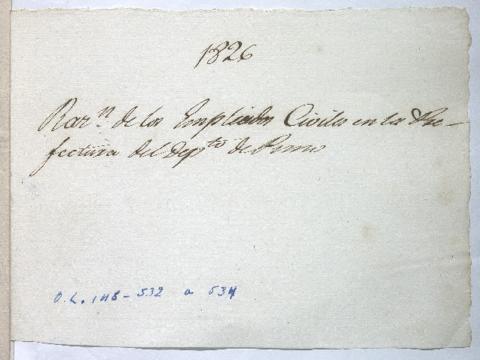 1826
Raz.ⁿ de los Empleados Civiles en la Pre-
fectura del Dep.to de Puno
O.L. 145 - 532 a 534